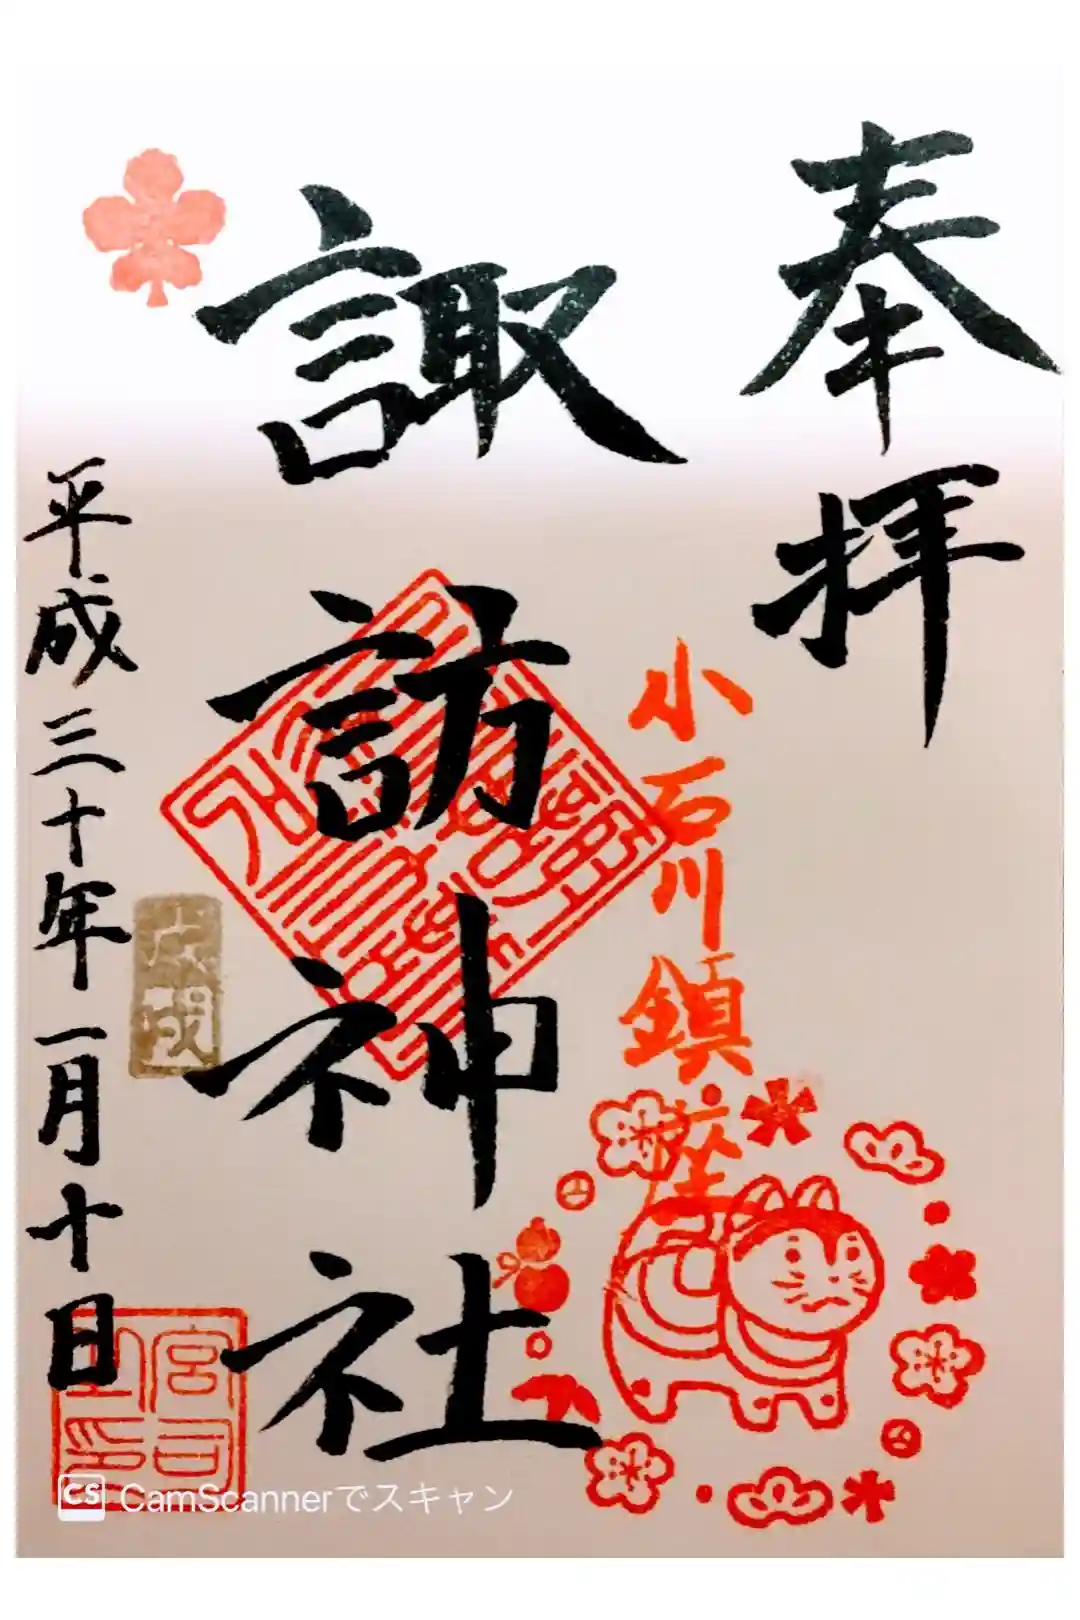 奉拝
小石川鎮座
諏訪神社
平成三十年一月十日
戊戌
宮司之印
CS CamScannerでスキャン